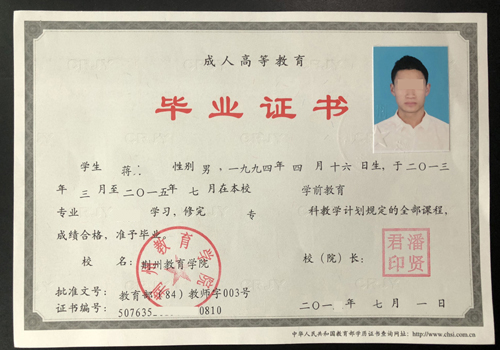 成人高等教育
毕业证书
学生 蒋 性别 男，一九九四年 四 月 十六 日生，于 二〇一三
年 三 月至 二〇一五年 七 月在本校 学前教育
专业 学习，修完 专 科教学计划规定的全部课程，
成绩合格，准予毕业。
校 名：荆州教育学院 校（院）长：
君潘
印贤
批准文号：教育部（84）教师字003号
证书编号：507635 0810 二〇一 年 七 月 一 日
中华人民共和国教育部学历证书查询网址：http://www.chsi.com.cn